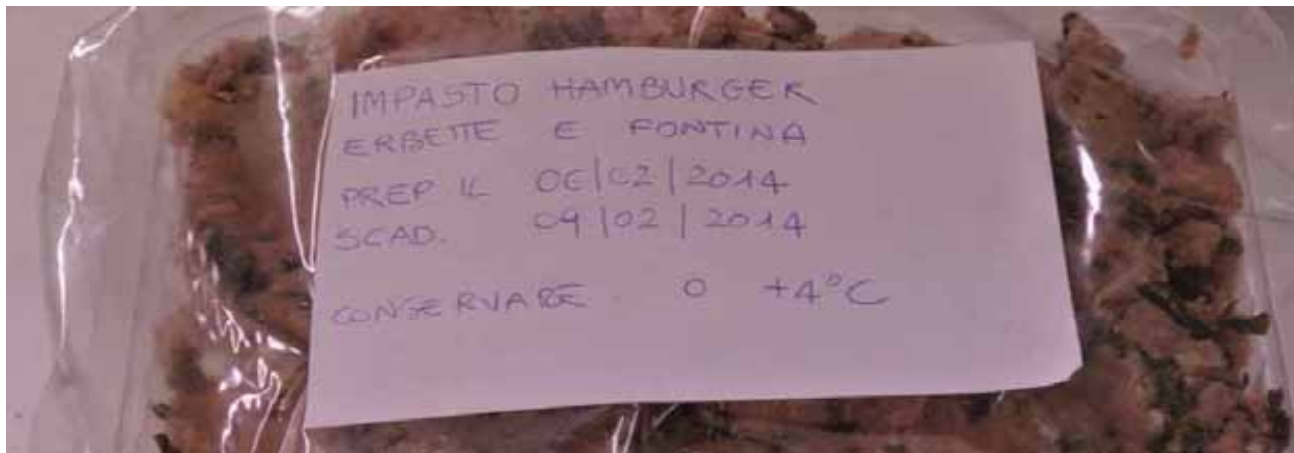 IMPASTO HAMBURGER
ERBETTE E FONTINA
PREP IL 06/02/2014
SCAD. 09/02/2014
CONSERVARE 0 +4°C